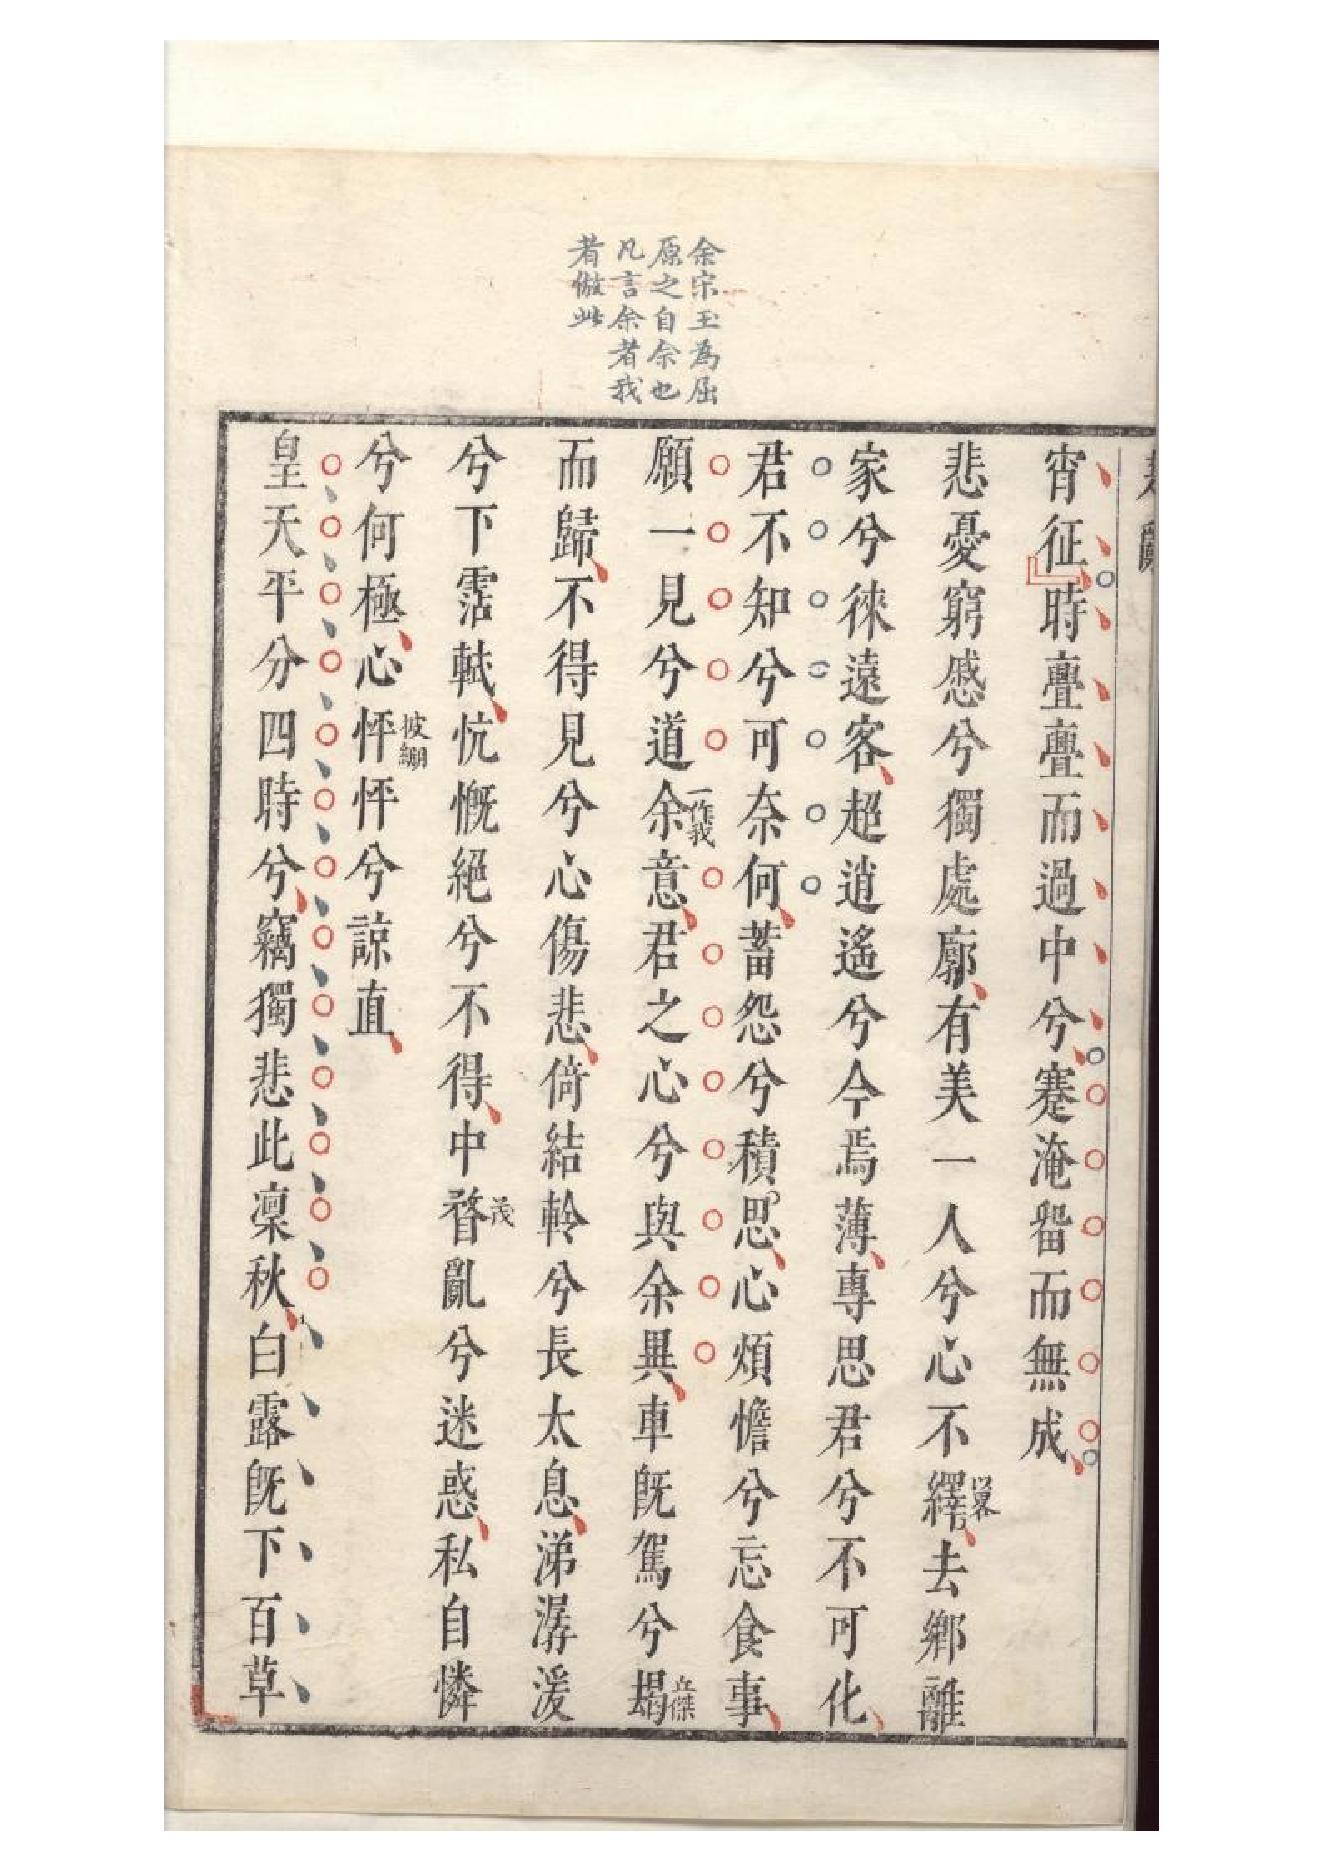 余宋玉為屈
原之自余也
凡言余者我
者倣此
宵征時亹亹而過中兮蹇淹畱而無成
悲憂窮慼兮獨處廓有美一人兮心不繹去鄉離
家兮徠遠客超逍遙兮今焉薄專思君兮不可化
君不知兮可奈何蓄怨兮積思心煩憺兮忘食事
願一見兮道余一作我意君之心兮與余異車既駕兮朅丘傑
而歸不得見兮心傷悲倚結軨兮長太息涕潺湲
兮下霑軾忼慨絕兮不得中瞀茂亂兮迷惑私自憐
兮何極心怦披繃怦兮諒直
皇天平分四時兮竊獨悲此凜秋白露既下百草